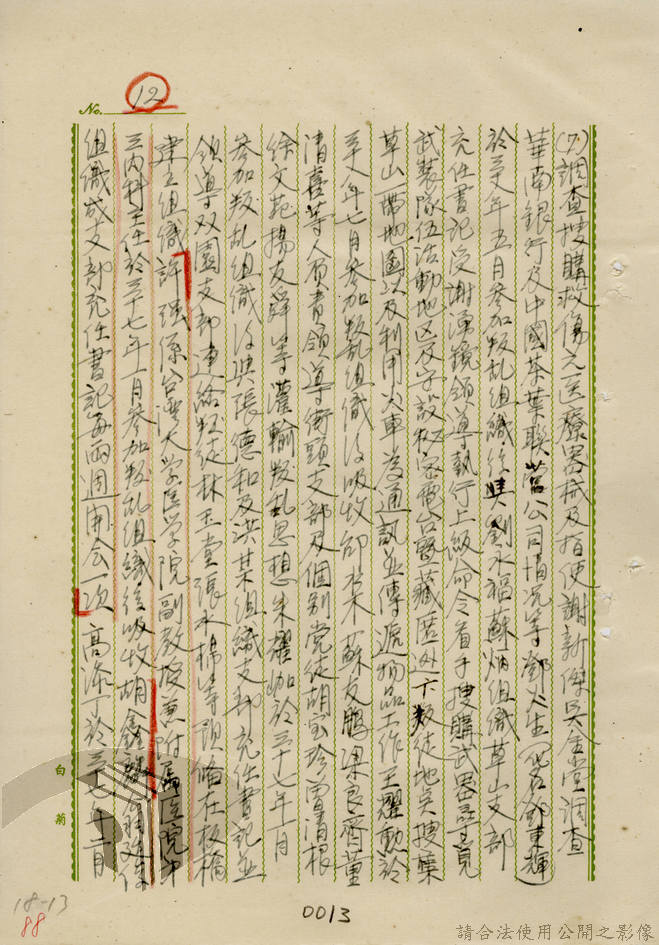 No. 12
(7)調查搜購救傷之医療器械及指使謝新傑吳金堂調查
華南銀行及中國茶葉联营公司情況等鄧火生(化名鄧東輝)
於三十八年五月參加叛乱組織後與劉永福蘇炳組織草山支部
充任書記受謝湧鏡領導執行上級命令着手搜購武器並覓
武裝隊伍活動地区及安設秘密電台暨藏匿逃亡叛徒地点搜集
草山一帶地圖以及利用火車為通訊並傳遞物品工作王耀勳於
三十八年七月參加叛乱組織後吸收邱
蘇友鵬梁良齊董
清喜等人負責領導街頭支部及個別党徒胡宝珍雷清根
徐文
楊友
等灌輸叛乱思想朱耀珈於三十七年一月
參加叛乱組織後與張德和及洪某組織支部充任書記並
領導双園支部連絡叛徒林玉堂張水棉等預備在板橋
建立組織許强係台灣大学医学院副教授兼附属医院第
三內科主任於三十七年一月參加叛乱組織後吸收胡鑫麟
組織成支部充任書記每兩週開会一次高添丁於三十七年二月
白
菊
18-13
88
0013
請合法使用公開之影像